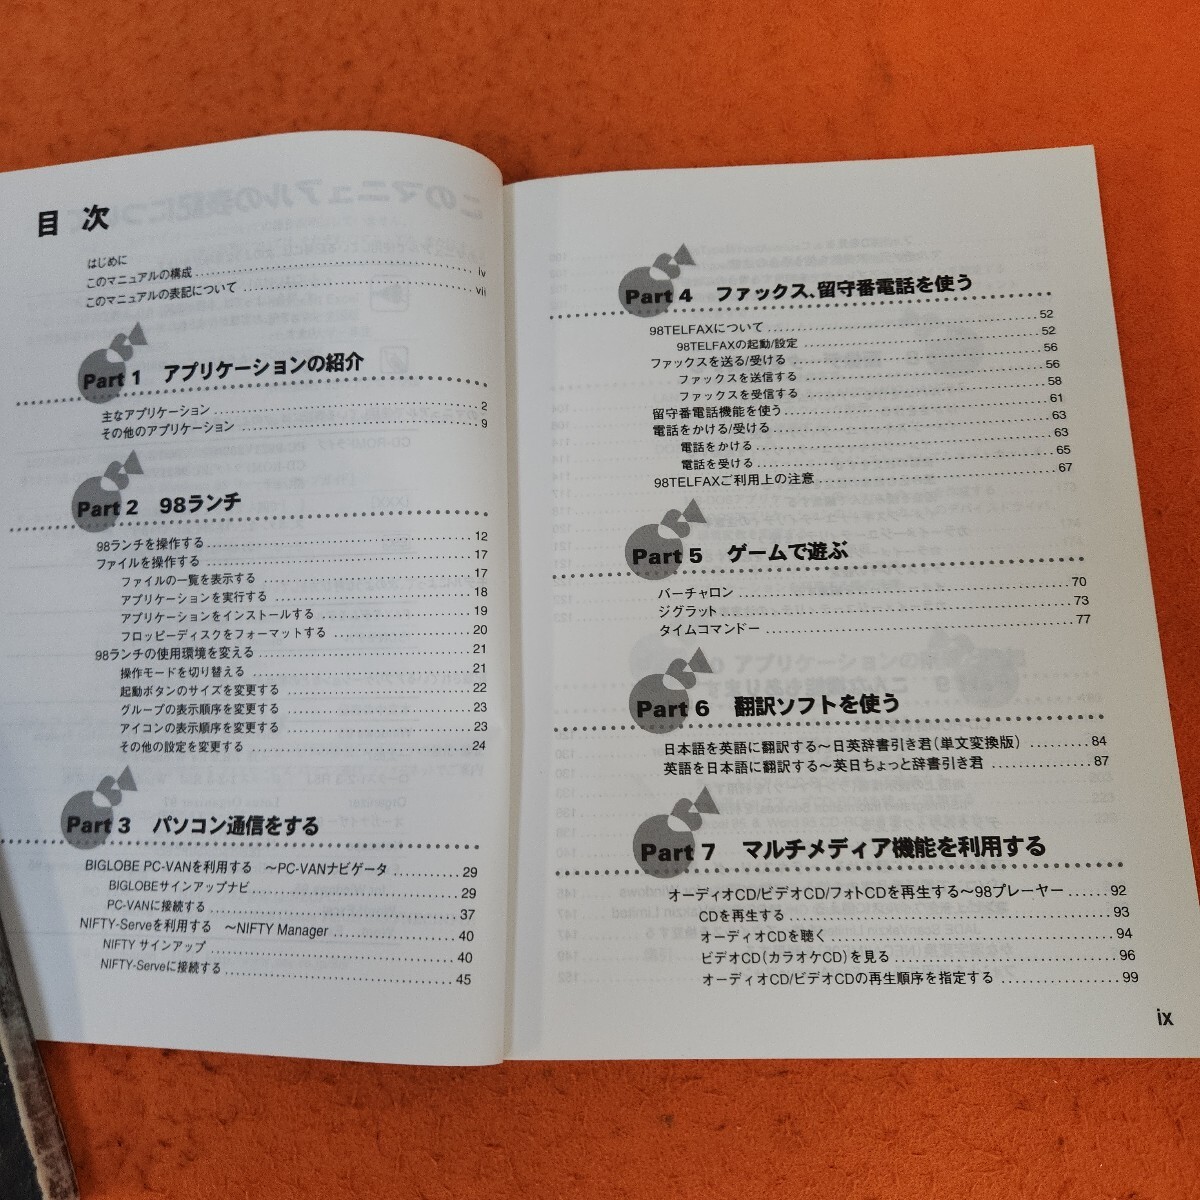 目 次
はじめに
このマニュアルの構成 iv
このマニュアルの表記について vii
Part 1 アプリケーションの紹介
主なアプリケーション 2
その他のアプリケーション 9
Part 2 98ランチ
98ランチを操作する 12
ファイルを操作する 17
ファイルの一覧を表示する 17
アプリケーションを実行する 18
アプリケーションをインストールする 19
フロッピーディスクをフォーマットする 20
98ランチの使用環境を変える 21
操作モードを切り替える 21
起動ボタンのサイズを変更する 22
グループの表示順序を変更する 23
アイコンの表示順序を変更する 23
その他の設定を変更する 24
Part 3 パソコン通信をする
BIGLOBE PC-VANを利用する ～PC-VANナビゲータ 29
BIGLOBEサインアップナビ 29
PC-VANに接続する 37
NIFTY-Serveを利用する ～NIFTY Manager 40
NIFTY サインアップ 40
NIFTY-Serveに接続する 45
Part 4 ファックス、留守番電話を使う
98TELFAXについて 52
98TELFAXの起動/設定 52
ファックスを送る/受ける 56
ファックスを送信する 56
ファックスを受信する 58
留守番電話機能を使う 61
電話をかける/受ける 63
電話をかける 63
電話を受ける 65
98TELFAXご利用上の注意 67
Part 5 ゲームで遊ぶ
バーチャロン 70
ジグラット 73
タイムコマンドー 77
Part 6 翻訳ソフトを使う
日本語を英語に翻訳する～日英辞書引き君(単文変換版) 84
英語を日本語に翻訳する～英日ちょっと辞書引き君 87
Part 7 マルチメディア機能を利用する
オーディオCD/ビデオCD/フォトCDを再生する～98プレーヤー 92
CDを再生する 93
オーディオCDを聴く 94
ビデオCD(カラオケCD)を見る 96
オーディオCD/ビデオCDの再生順序を指定する 99
ix